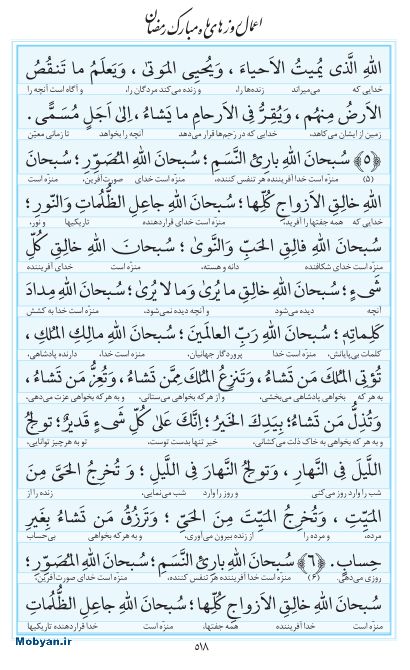 اعمال روزهای ماه مبارک رمضان
اللهِ الَّذی یُمیتُ الاَحیاءَ ، وَیُحیِی المَوتیٰ ، وَیَعلَمُ ما تَنقُصُ
خدایی که می‌میراند زنده‌ها را، و زنده می‌کند مردگان را، و آگاه است آنچه را
الاَرضُ مِنهُم ، وَیُقِرُّ فِی الاَرحامِ ما یَشاءُ ، اِلیٰ اَجَلٍ مُسَمًّی .
زمین از ایشان می‌کاهد، خدایی که در رحِم‌ها قرار می‌دهد آنچه را بخواهد تا زمانی معیّن
﴿۵﴾ سُبحانَ اللهِ بارِئِ النَّسَمِ ؛ سُبحانَ اللهِ المُصَوِّرِ ؛ سُبحانَ
(۵) منزّه است خدا آفریننده هر تنفس کننده، منزّه است خدای صورت‌آفرین، منزّه است
اللهِ خالِقِ الاَزواجِ کُلِّها ؛ سُبحانَ اللهِ جاعِلِ الظُّلُماتِ وَالنّورِ ؛
خدایی که همه جفتها را آفرید، منزّه است خدای قراردهنده تاریکیها و نور،
سُبحانَ اللهِ فالِقِ الحَبِّ وَالنَّویٰ ؛ سُبحانَ اللهِ خالِقِ کُلِّ
منزّه است خدای شکافنده دانه و هسته، منزّه است خدای آفریننده
شَیءٍ ؛ سُبحانَ اللهِ خالِقِ ما یُریٰ وَما لا یُریٰ ؛ سُبحانَ اللهِ مِدادَ
آنچه دیده می‌شود و آنچه دیده نمی‌شود، منزّه است خدا به کشش
کَلِماتِهِ ؛ سُبحانَ اللهِ رَبِّ العالَمینَ ؛ سُبحانَ اللهِ مالِکِ المُلکِ ،
کلمات بی‌پایانش، منزّه است خدا پروردگار جهانیان، منزّه است خدا، دارنده پادشاهی،
تُؤتِی المُلکَ مَن تَشاءُ ، وَتَنزِعُ المُلکَ مِمَّن تَشاءُ ، وَتُعِزُّ مَن تَشاءُ ،
به هر که بخواهی پادشاهی می‌بخشی، و از هر که بخواهی می‌ستانی، و به هر که بخواهی عزت می‌دهی،
وَتُذِلُّ مَن تَشاءُ ؛ بِیَدِکَ الخَیرُ ؛ اِنَّکَ عَلیٰ کُلِّ شَیءٍ قَدیرٌ ؛ تولِجُ
و به هر که بخواهی به خاک ذلت می‌کشانی، خیر تنها بدست توست، تو به هر چیز توانایی،
اللَّیلَ فِی النَّهارِ ، وَتولِجُ النَّهارَ فِی اللَّیلِ ؛ وَ تُخرِجُ الحَیَّ مِنَ
شب را وارد روز می‌کنی و روز را وارد شب می‌نمایی، زنده را از
المَیِّتِ ، وَتُخرِجُ المَیِّتَ مِنَ الحَیِّ ؛ وَتَرزُقُ مَن تَشاءُ بِغَیرِ
مرده، و مرده را از زنده بیرون می‌آوری، و به هر که بخواهی بی‌حساب
حِسابٍ . ﴿۶﴾ سُبحانَ اللهِ بارِئِ النَّسَمِ ؛ سُبحانَ اللهِ المُصَوِّرِ ؛
روزی می‌دهی. (۶) منزّه است خدا آفریننده هر تنفس کننده، منزّه است خدای صورت‌آفرین،
سُبحانَ اللهِ خالِقِ الاَزواجِ کُلِّها ؛ سُبحانَ اللهِ جاعِلِ الظُّلُماتِ
منزّه است خدا آفریننده همه جفتها، منزّه است خدا قراردهنده تاریکیها
۵۱۸
Mobyan.ir